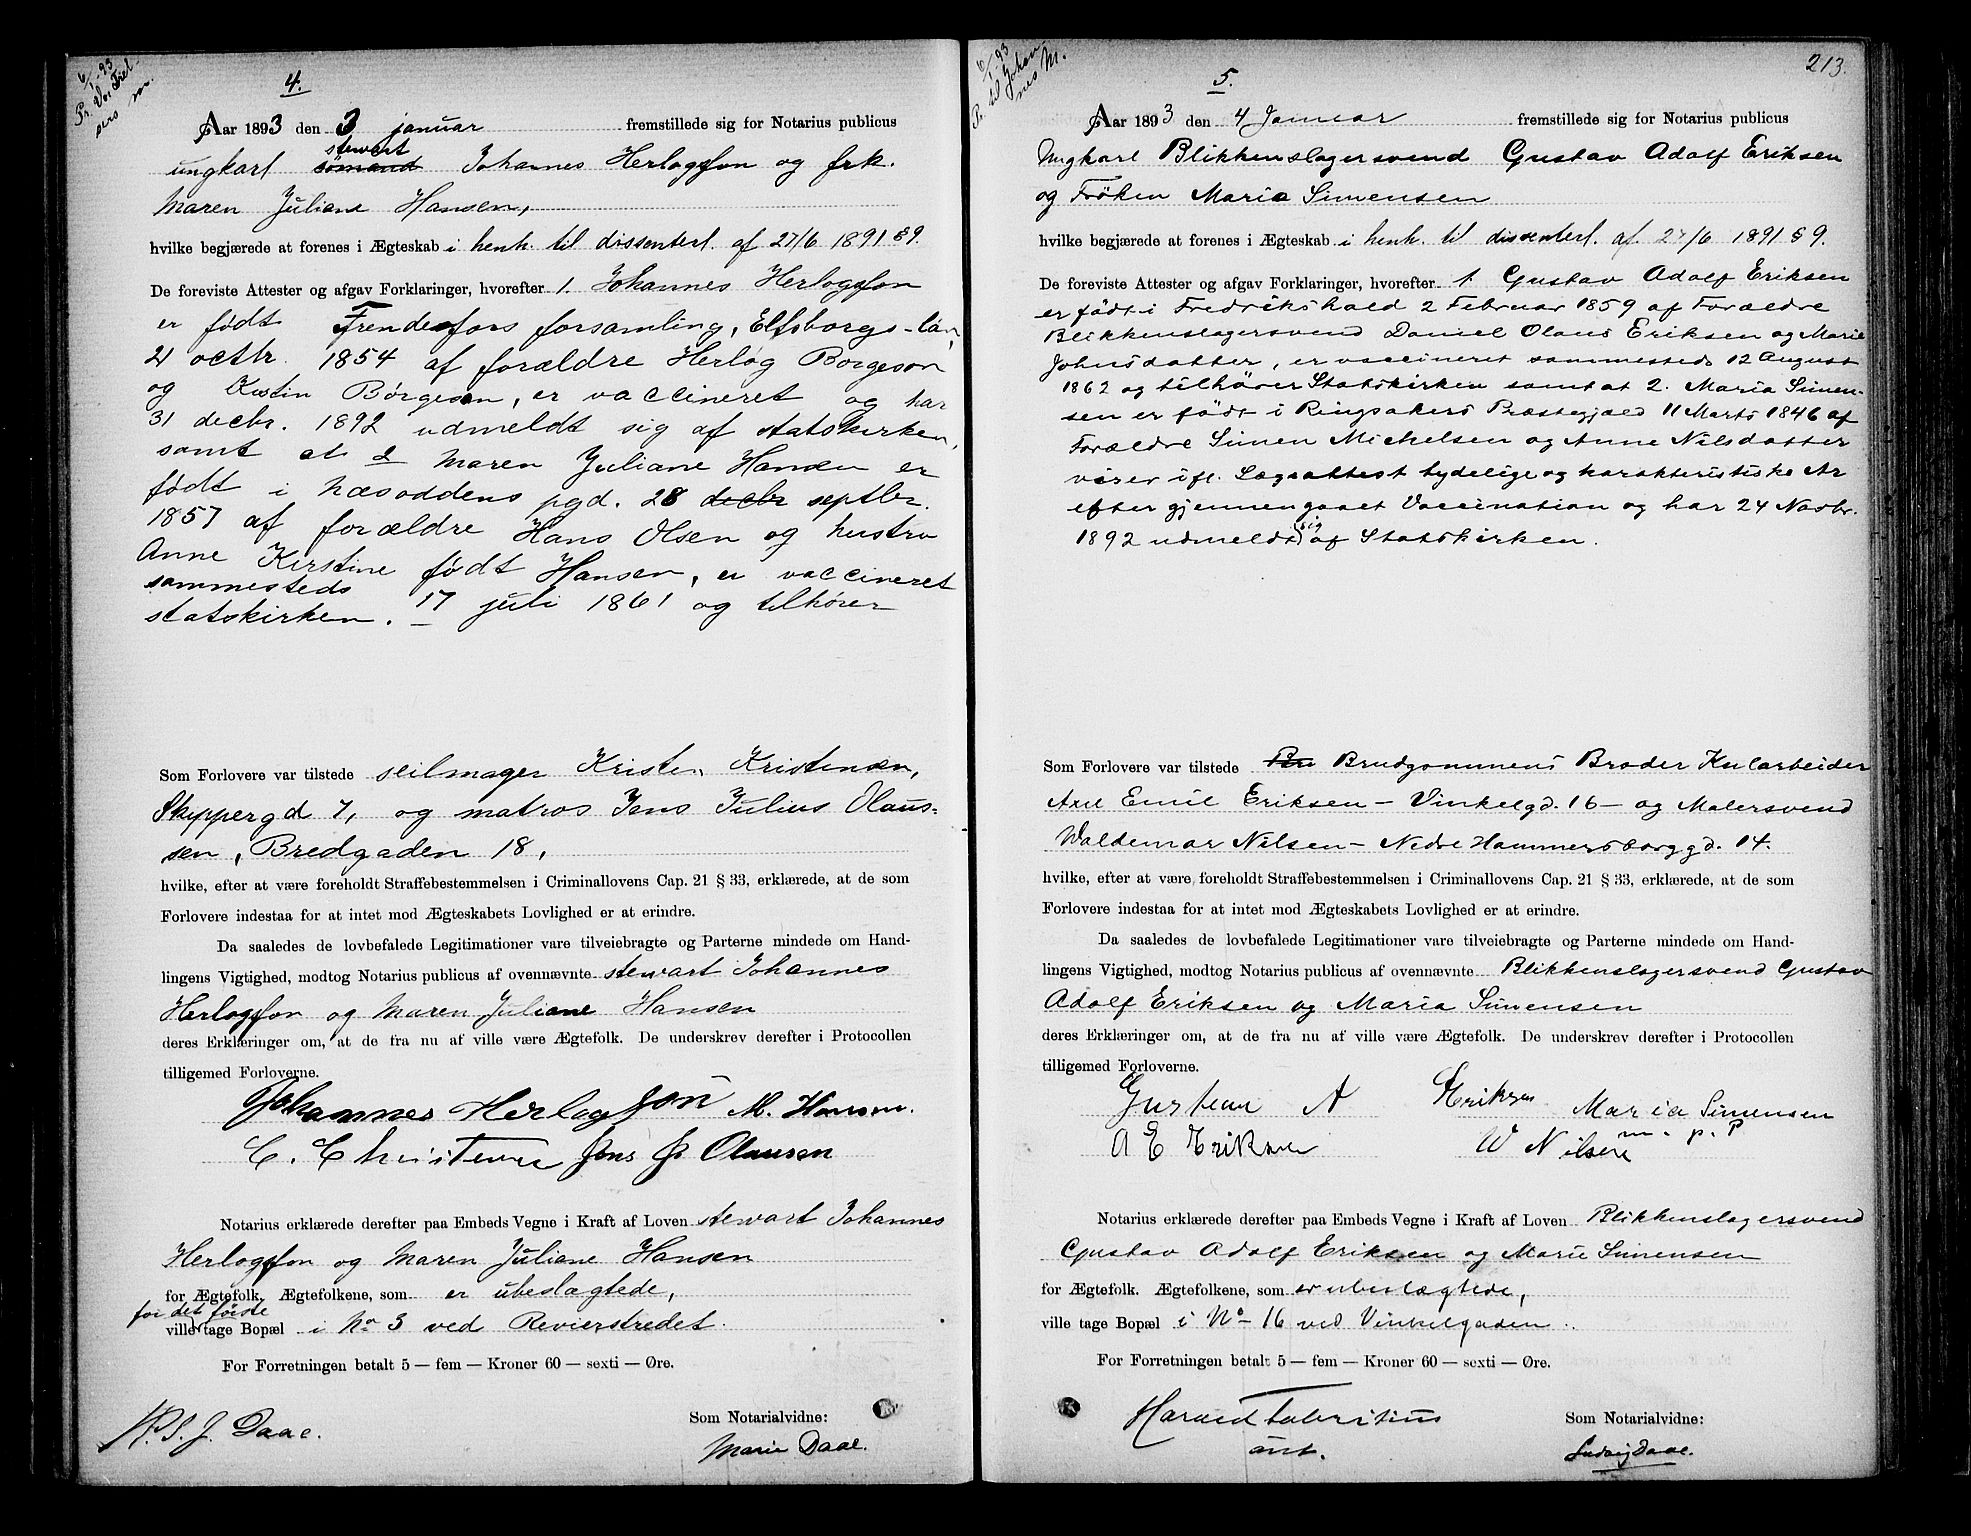 6/1-93
Pr. Vor Frel-
sers m.
4.
Aar 1893 den 3 januar fremstillede sig for Notarius publicus
stewart
ungkarl sømand Johannes Herlogsson og frk.
Maren Juliane Hansen,
hvilke begjærede at forenes i Ægteskab i henh. til dissenterl. af 27/6 1891 § 9.
De foreviste Attester og afgav Forklaringer, hvorefter 1. Johannes Herlogsson
er født Frendefors forsamling, Elfsborgs-län,
21 octbr. 1854 af forældre Herlog Borgeson
og Kistin Börgeson, er vaccineret og har
31 decbr. 1892 udmeldt sig af statskirken,
samt at 2 Maren Juliane Hansen er
født i Næsoddens pgd. 28 decbr septbr.
1857 af forældre Hans Olsen og hustru
Anne Kirstine født Hansen, er vaccineret
sammesteds 17 juli 1861 og tilhører
statskirken.
Som Forlovere var tilstede seilmager Kristen Kristensen,
Skippergd 7, og matros Jens Julius Olaus-
sen, Bredgaden 18,
hvilke, efter at være foreholdt Straffebestemmelsen i Criminallovens Cap. 21 § 33, erklærede, at de som
Forlovere indestaa for at intet mod Ægteskabets Lovlighed er at erindre.
Da saaledes de lovbefalede Legitimationer vare tilveiebragte og Parterne mindede om Hand-
lingens Vigtighed, modtog Notarius publicus af ovennævnte stewart Johannes
Herlogsson og Maren Juliane Hansen
deres Erklæringer om, at de fra nu af ville være Ægtefolk. De underskrev derefter i Protocollen
tilligemed Forloverne.
Johannes Herlogsson M. Hansen.
C. Christensen Jens J. Olausen
Notarius erklærede derefter paa Embeds Vegne i Kraft af Loven stewart Johannes
Herlogsson og Maren Juliane Hansen
for Ægtefolk. Ægtefolkene, som er ubeslægtede,
for det første
ville tage Bopæl i No 3 ved Revierstredet.
For Forretningen betalt 5 — fem — Kroner 60 — sexti — Øre.
Som Notarialvidne:
J. Daae.
Marie Daae.
6/1-93
Pr. til Johan-
nes M.
213.
5.
Aar 1893 den 4 Januar fremstillede sig for Notarius publicus
Ungkarl Blikkenslagersvend Gustav Adolf Eriksen
og Frøken Maria Simensen
hvilke begjærede at forenes i Ægteskab i henh. til dissenterl. af 27/6 1891 § 9.
De foreviste Attester og afgav Forklaringer, hvorefter 1. Gustav Adolf Eriksen
er født i Fredrikshald 2 Februar 1859 af Forældre
Blikkenslagersvend Daniel Olaus Eriksen og Marie
Johnsdatter, er vaccineret sammesteds 12 August
1862 og tilhører Statskirken samt at 2. Maria Simen-
sen er født i Ringsakers Præstegjæld 11 Marts 1846 af
Forældre Simen Michelsen og Anne Nilsdatter
viser ifl. Lægeattest tydelige og karakteristiske Ar
efter gjennemgaaet Vaccination og har 24 Novbr.
1892 udmeldt sig af Statskirken.
Som Forlovere var tilstede Bru Brudgommens Broder Kularbeider
Axel Emil Eriksen — Vinkelgd. 16 — og Malersvend
Waldemar Nilsen — Nedre Hammersborggd. 14.
hvilke, efter at være foreholdt Straffebestemmelsen i Criminallovens Cap. 21 § 33, erklærede, at de som
Forlovere indestaa for at intet mod Ægteskabets Lovlighed er at erindre.
Da saaledes de lovbefalede Legitimationer vare tilveiebragte og Parterne mindede om Hand-
lingens Vigtighed, modtog Notarius publicus af ovennævnte Blikkenslagersvend Gustav
Adolf Eriksen og Maria Simensen
deres Erklæringer om, at de fra nu af ville være Ægtefolk. De underskrev derefter i Protocollen
tilligemed Forloverne.
Gustav A Eriksen Maria Simensen
m. p. P
A E Eriksen W Nilsen
Notarius erklærede derefter paa Embeds Vegne i Kraft af Loven Blikkenslagersvend
Gustav Adolf Eriksen og Marie Simensen
for Ægtefolk. Ægtefolkene, som er ubeslægtede,
ville tage Bopæl i No 16 ved Vinkelgaden.
For Forretningen betalt 5 — fem — Kroner 60 — sexti — Øre.
Harald Fabritius
Som Notarialvidne:
Ludvig Daae.